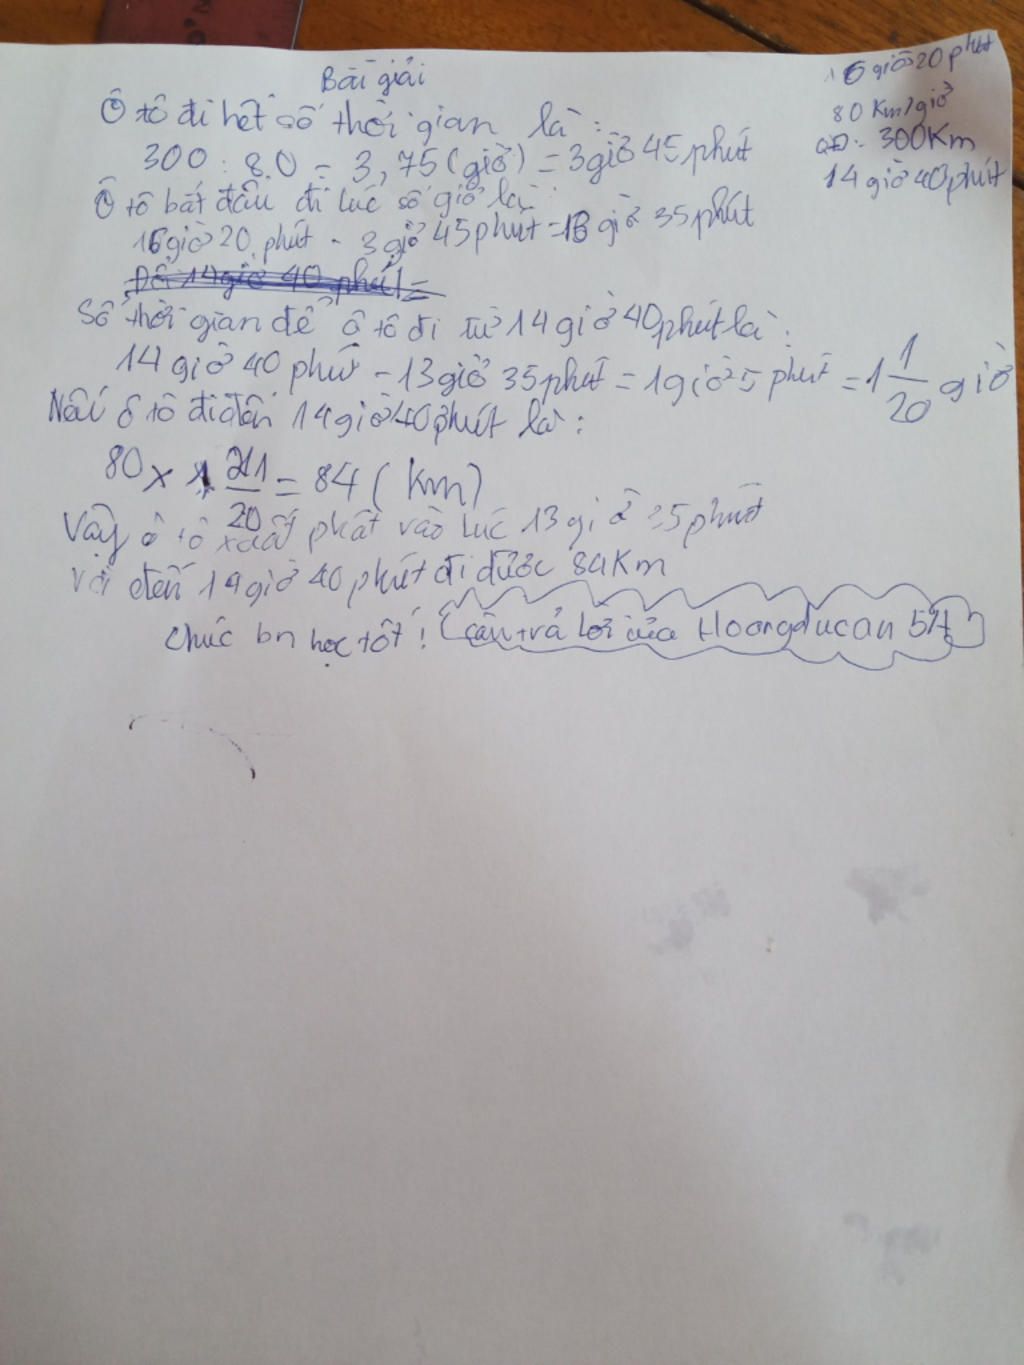 Bài giải
16 giờ 20 phút
80 Km/giờ
QĐ: 300Km
14 giờ 40 phút
Ô tô đi hết số thời gian là:
300 : 80 = 3,75 (giờ) = 3 giờ 45 phút
Ô tô bắt đầu đi lúc số giờ là:
16 giờ 20 phút - 3 giờ 45 phút = 13 giờ 35 phút
14 giờ 40 phút =
Số thời gian để ô tô đi từ 14 giờ 40 phút là:
14 giờ 40 phú - 13 giờ 35 phút = 1 giờ 5 phút = 1 1/20 giờ
Nếu ô tô đi đến 14 giờ 40 phút là:
80 x 21/20 = 84 (km)
Vậy ô tô xuất phát vào lúc 13 giờ 35 phút
Với đến 14 giờ 40 phút đi được 84 Km
Chúc bn học tốt! Câu trả lời của Hoangducan 5A